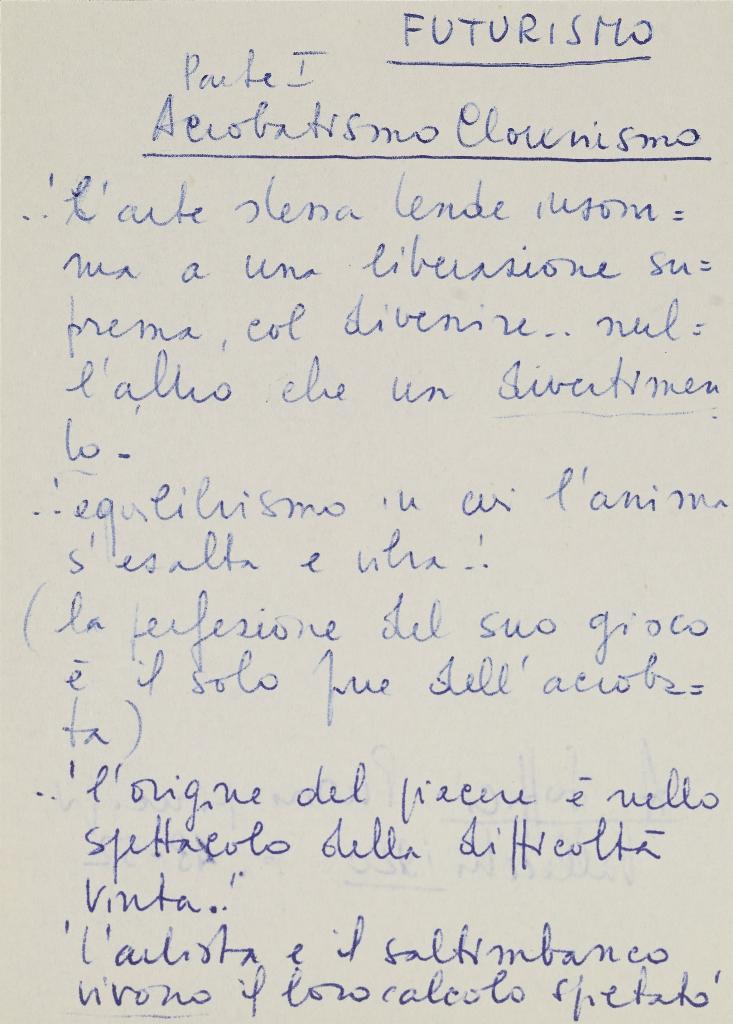 FUTURISMO
Parte I
Acrobatismo Clownismo
..'L'arte stessa tende insom=
ma a una liberazione su=
prema, col divenire.. nul=
l'altro che un divertimen
to -
..'equilibrismo in cui l'anima
s'esalta e vibra..'
(la perfezione del suo gioco
è il solo fine dell'acroba=
ta)
..'l'origine del piacere è nello
spettacolo della difficoltà
vinta..'
'l'artista e il saltimbanco
vivono il loro calcolo spietato'